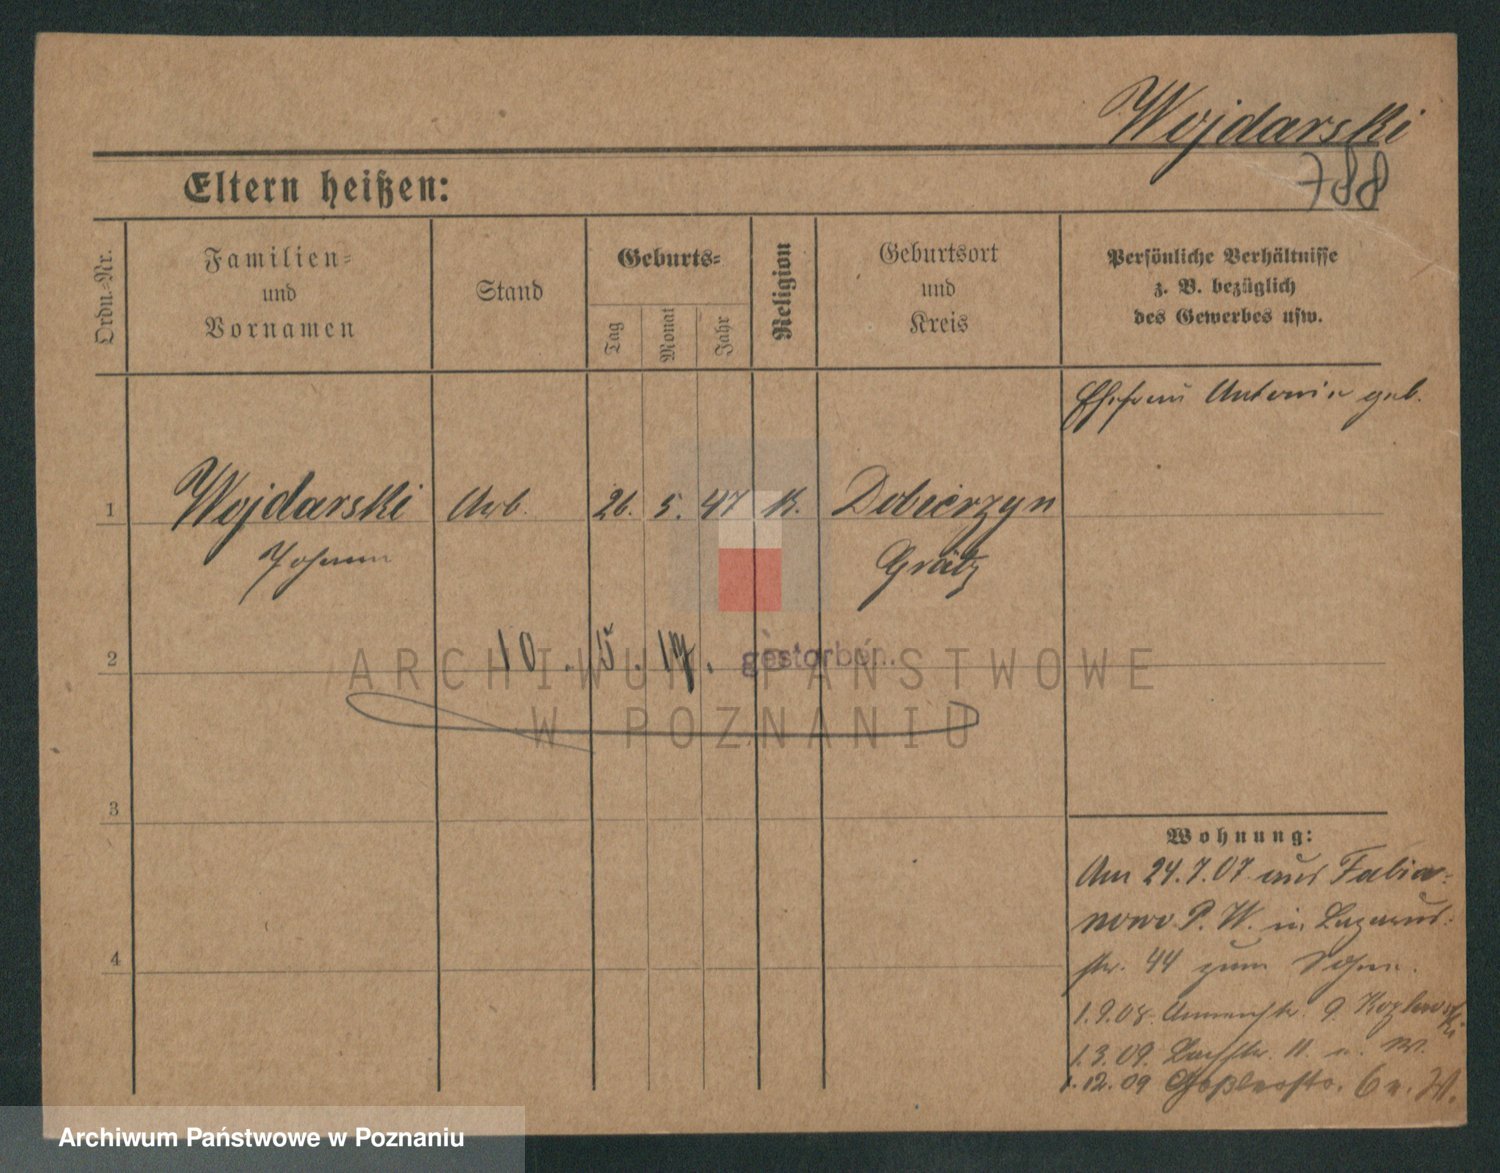 Wojdarski
788
Eltern heißen:
Ordn.-Nr.
Familien-
und
Vornamen
Stand
Geburts-
Tag
Monat
Jahr
Religion
Geburtsort
und
Kreis
Persönliche Verhältnisse
z. B. bezüglich
des Gewerbes usw.
Ehefrau Antonie geb.
1
Wojdarski Arb. 26. 5. 47 K. Dobierzyn
Johann
Grätz
2
10. 5. 17. gestorben.
ARCHIWUM PAŃSTWOWE
W POZNANIU
3
Wohnung:
Am 24.7.07 aus Fabia-
nowo P. W. in Lazarus-
str. 44 zum Sohne.
4
1.9.08. Annenstr. 9. Kozlowski
1.3.09. 11. u. W.
1.12.09 Goßlerstr. 6 u. W.
Archiwum Państwowe w Poznaniu